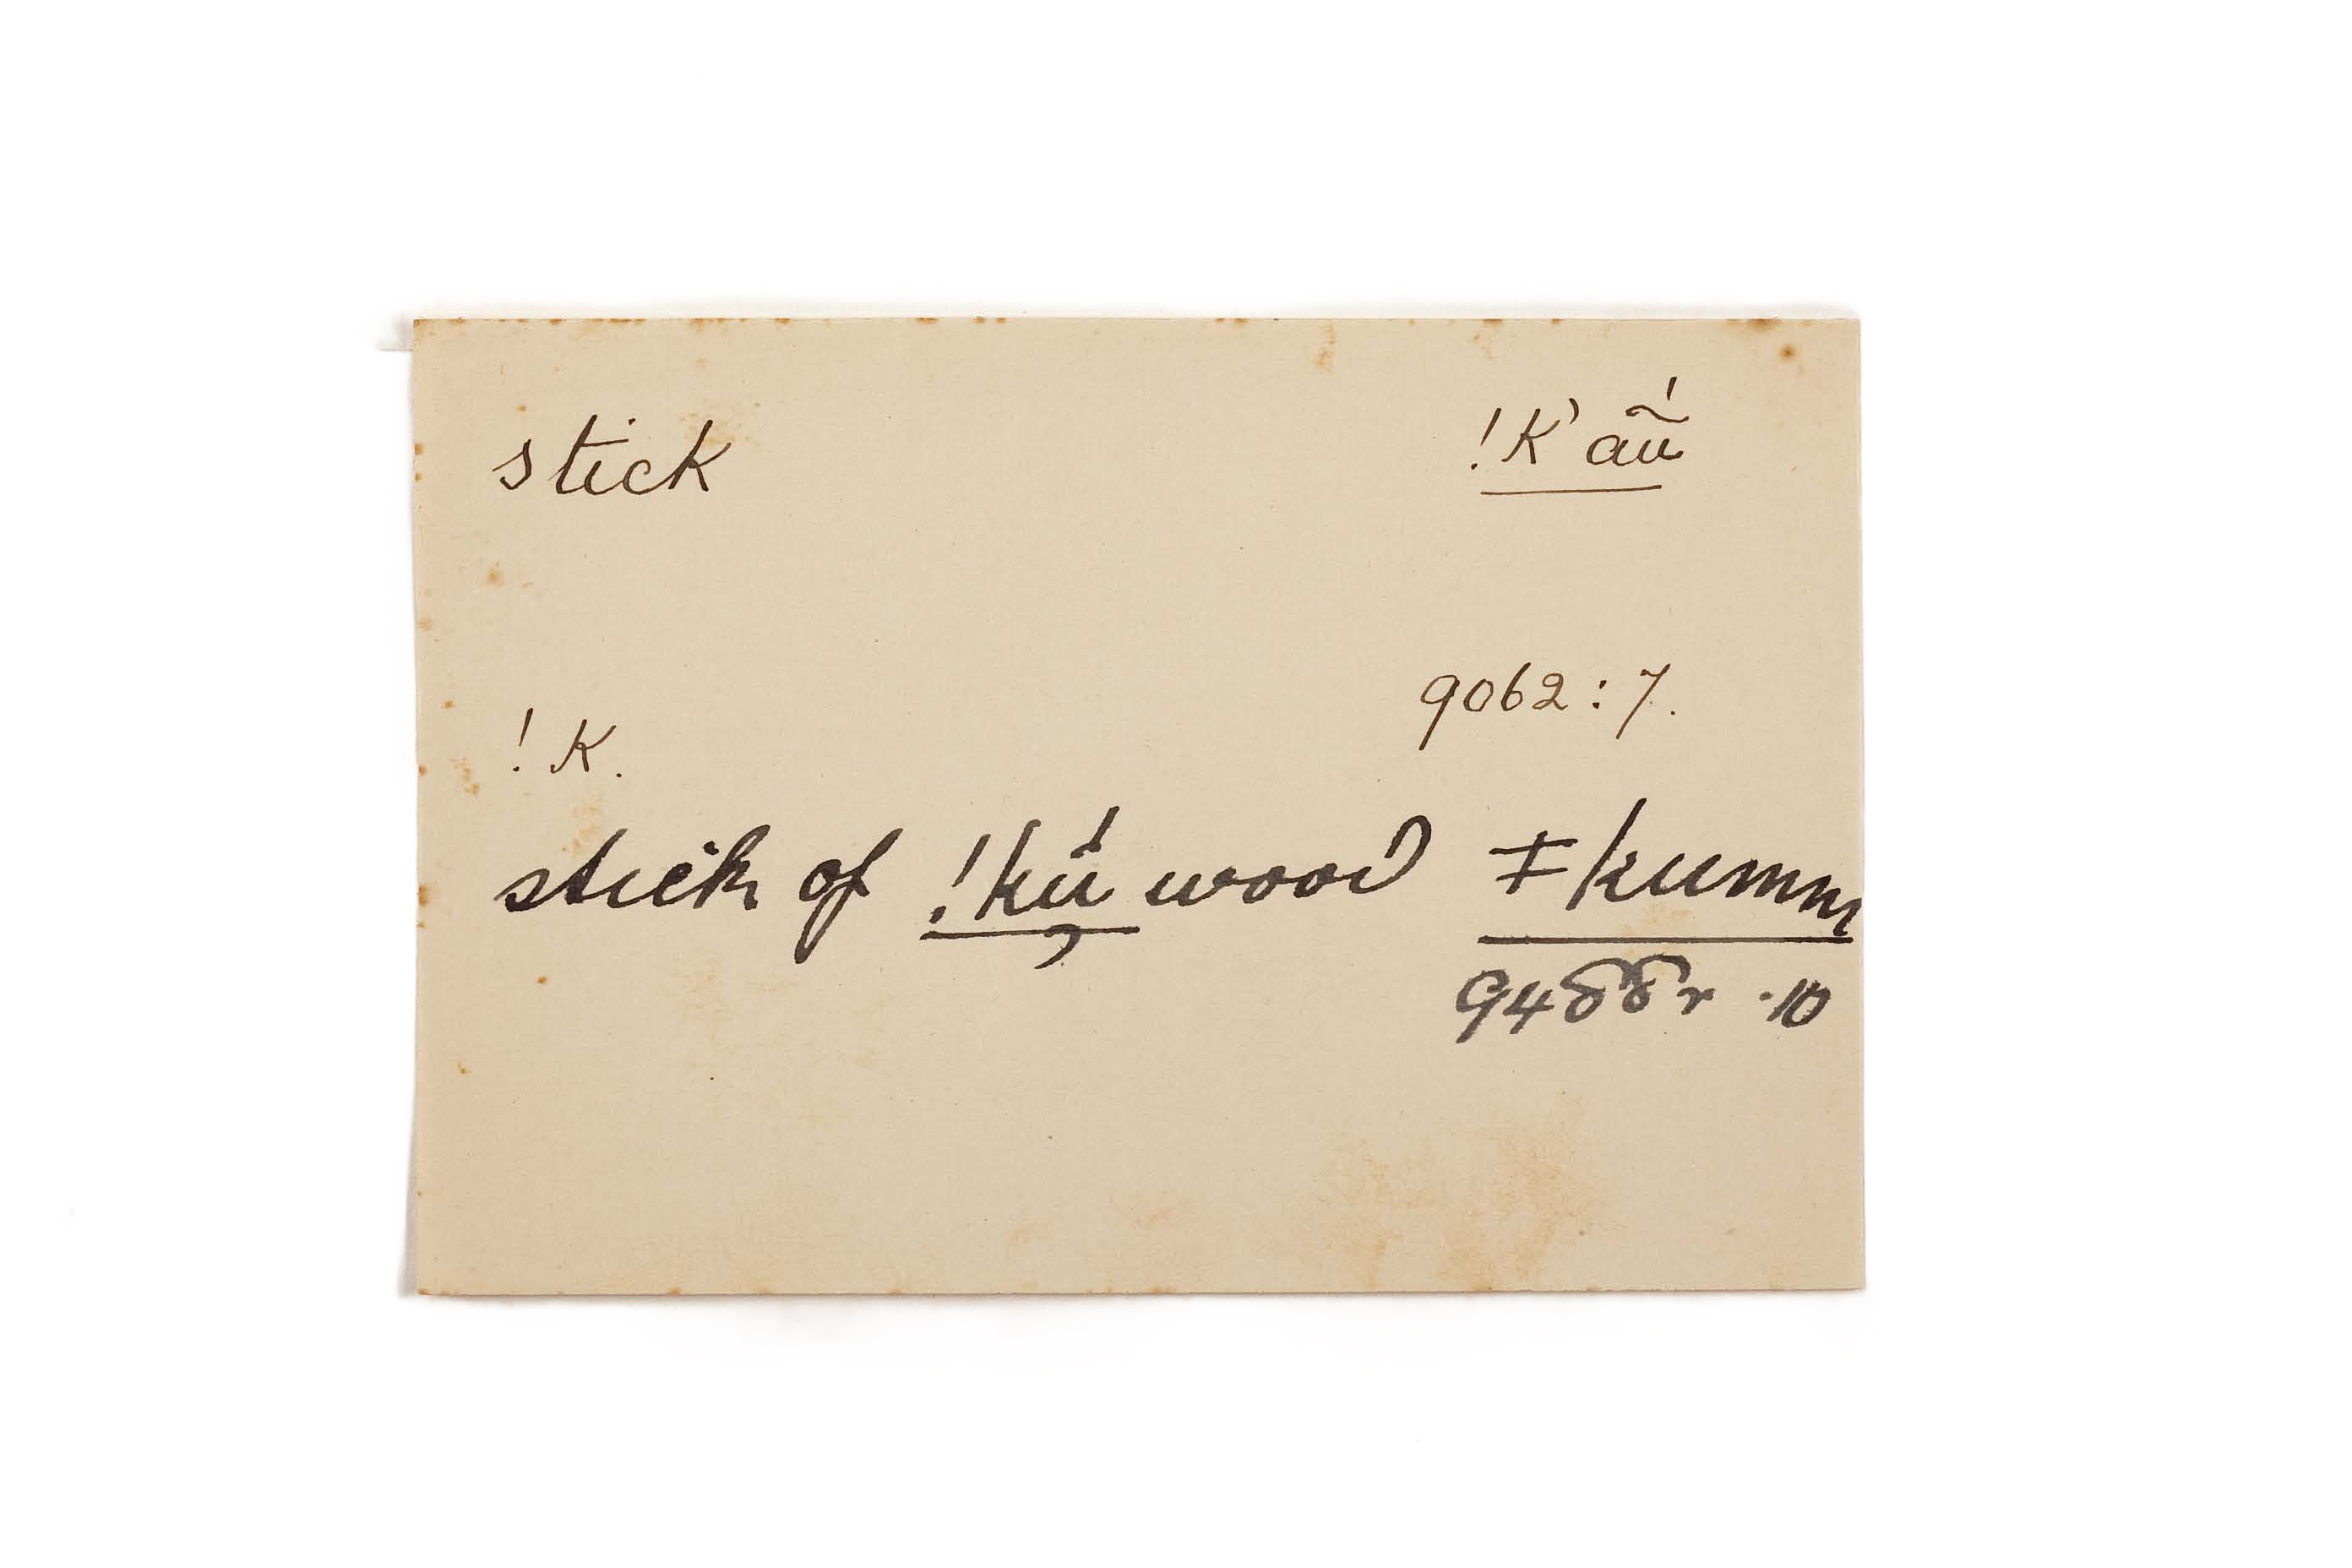 stick !k’aṹ
9062 : 7.
! K.
stick of !kú̦ wood ǂkumm
9488r .10